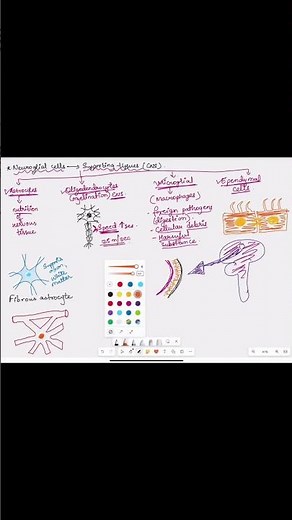 * Neuroglial cells → Supporting tissues (CNS).
Astrocytes
→ nutrition
of
nervous
tissue
Oligodendrocytes
(myelination) CNS
Speed ↑ses
Microglial
(Macrophages)
foreign pathogens
(digestion)
- Cellular debris
- Harmful
substance
Ependymal
cells
white
matter
Fibrous astrocyte